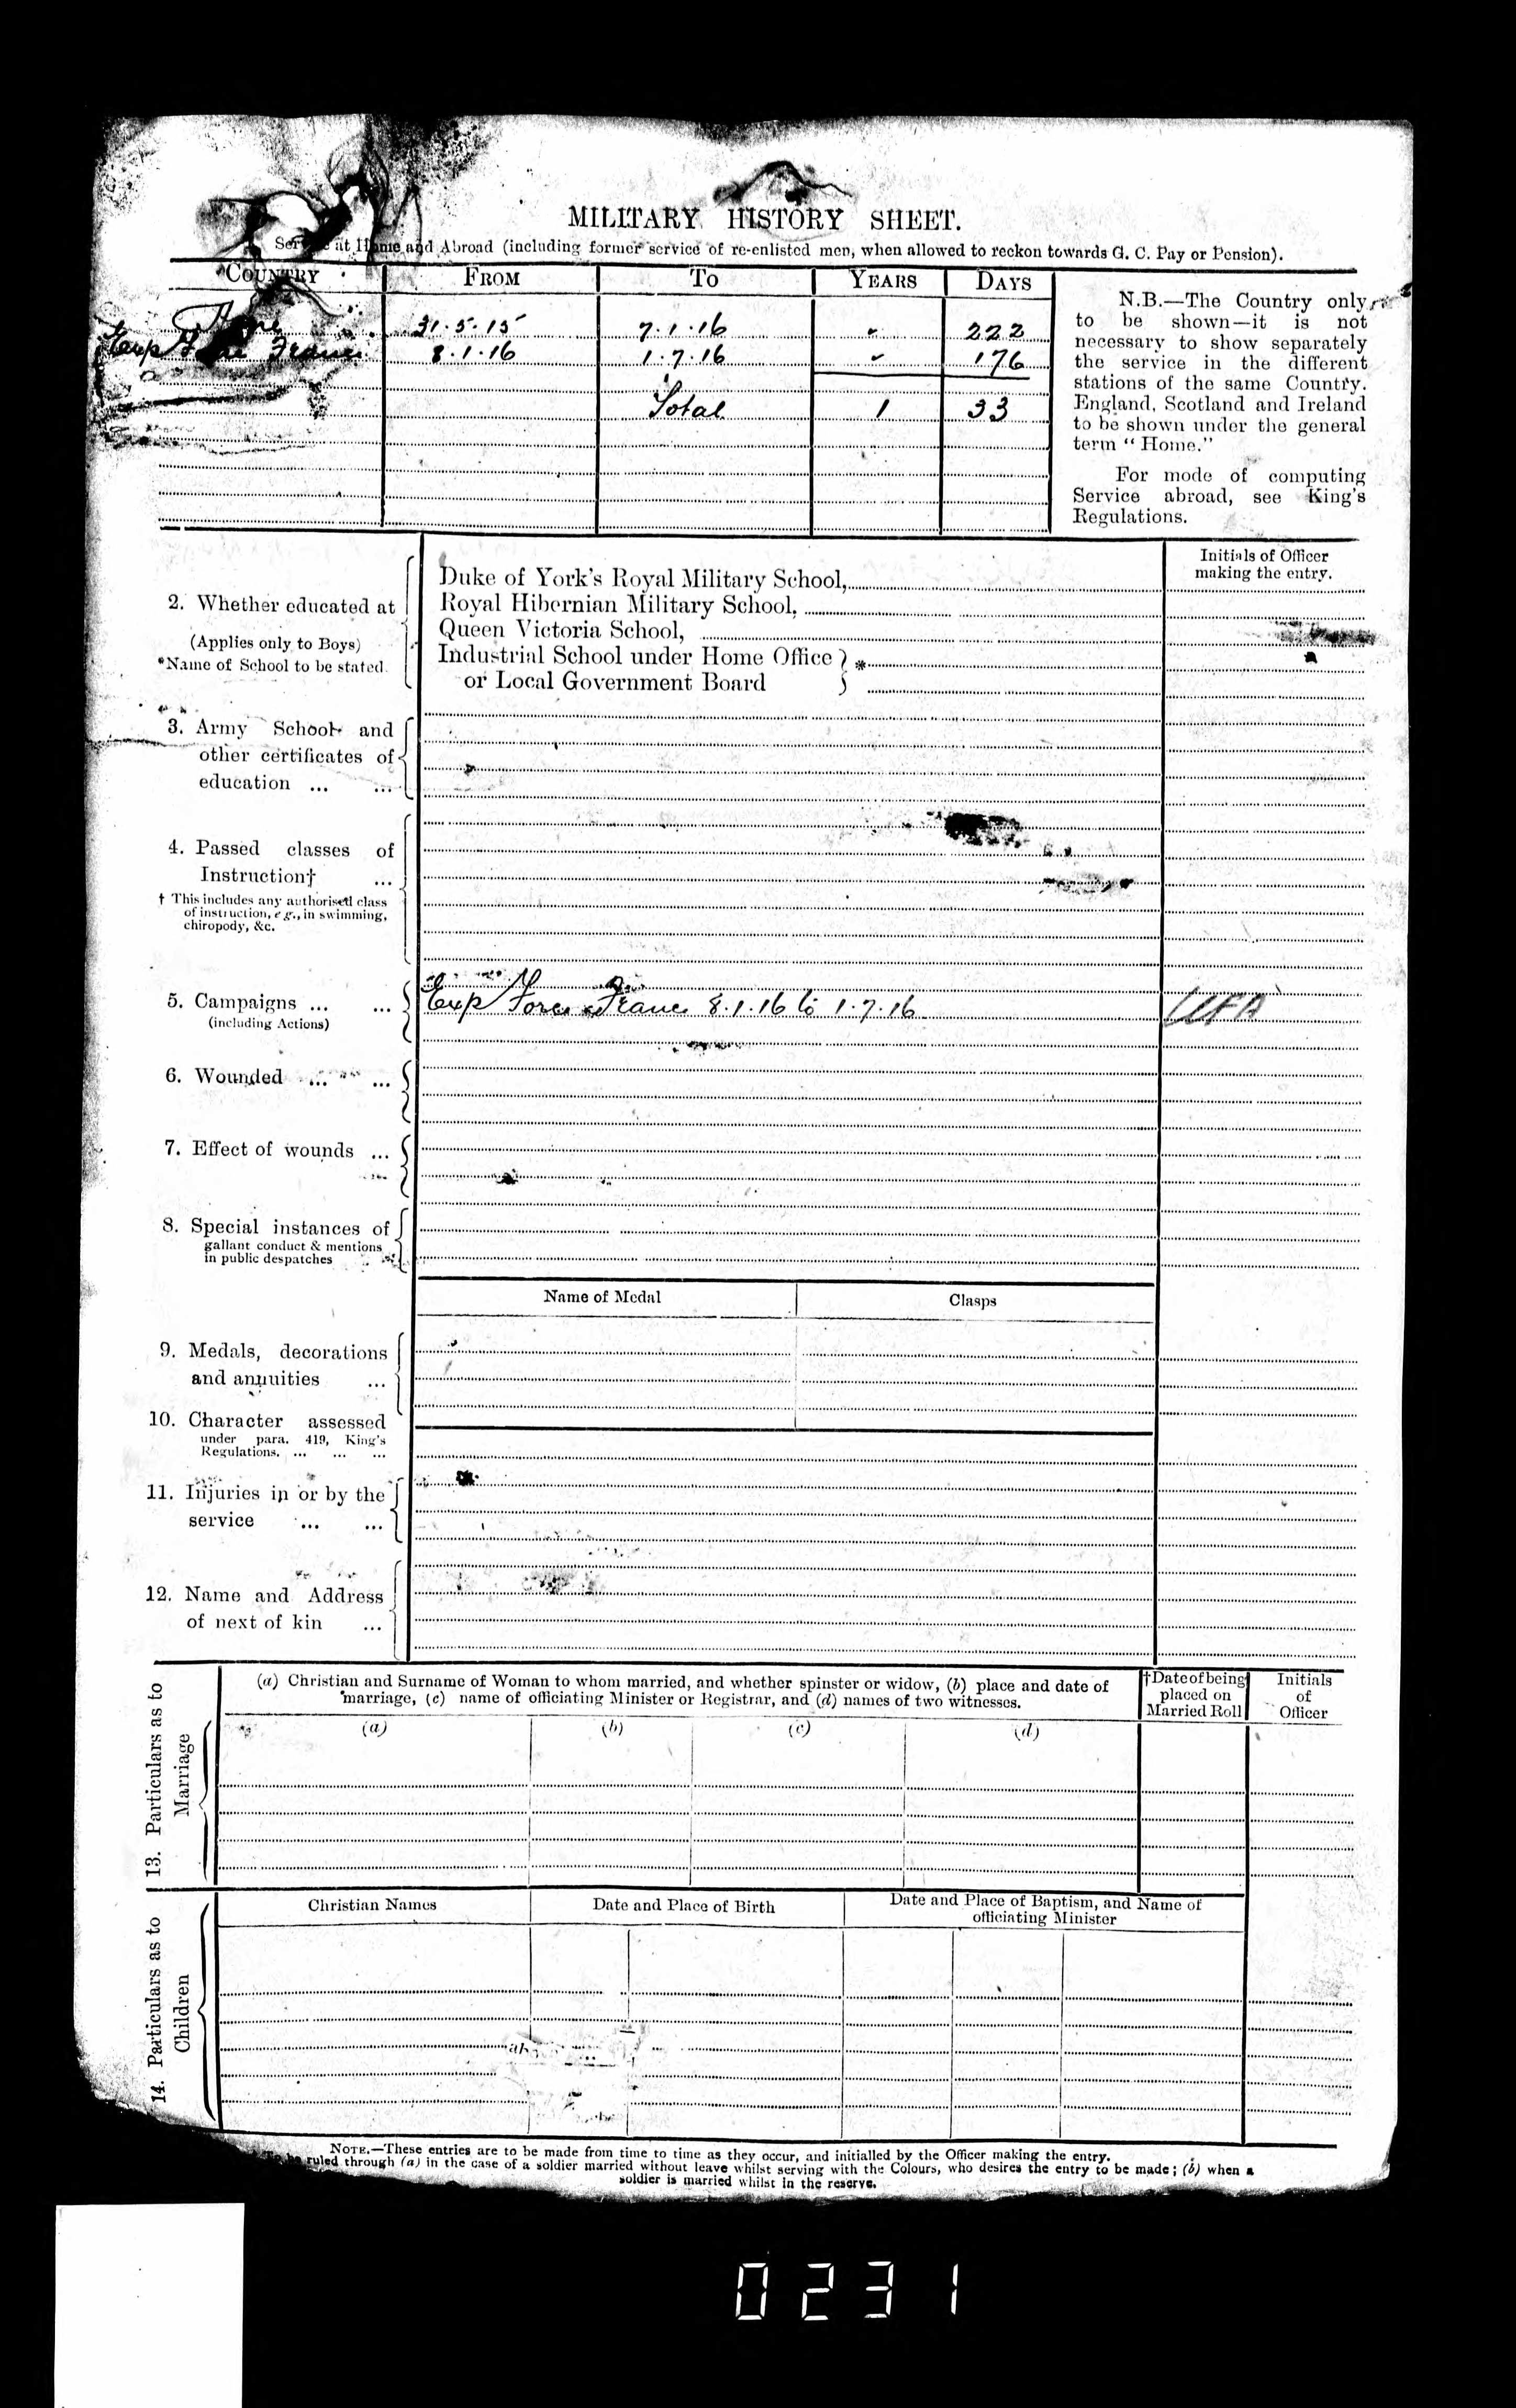 MILITARY HISTORY SHEET.
Service at Home and Abroad (including former service of re-enlisted men, when allowed to reckon towards G. C. Pay or Pension).
COUNTRY FROM TO YEARS DAYS
Home 31.5.15 7.1.16 - 222
Exp Force France 8.1.16 1.7.16 - 176
Total 1 33
N.B.—The Country only
to be shown—it is not
necessary to show separately
the service in the different
stations of the same Country.
England, Scotland and Ireland
to be shown under the general
term “ Home.”
For mode of computing
Service abroad, see King's
Regulations.
Initials of Officer
making the entry.
2. Whether educated at
(Applies only to Boys)
*Name of School to be stated.
Duke of York's Royal Military School,
Royal Hibernian Military School,
Queen Victoria School,
Industrial School under Home Office } *
or Local Government Board }
3. Army School and
other certificates of
education ... ...
4. Passed classes of
Instruction† ...
† This includes any authorised class
of instruction, e.g., in swimming,
chiropody, &c.
5. Campaigns ... ...
(including Actions)
Exp Force France 8.1.16 to 1.7.16
6. Wounded ... ...
7. Effect of wounds ...
8. Special instances of
gallant conduct & mentions
in public despatches
Name of Medal Clasps
9. Medals, decorations
and annuities ...
10. Character assessed
under para. 419, King's
Regulations. ... ... ...
11. Injuries in or by the
service ... ...
12. Name and Address
of next of kin ...
13. Particulars as to
Marriage
(a) Christian and Surname of Woman to whom married, and whether spinster or widow, (b) place and date of
marriage, (c) name of officiating Minister or Registrar, and (d) names of two witnesses.
†Date of being
placed on
Married Roll
Initials
of
Officer
(a) (b) (c) (d)
14. Particulars as to
Children
Christian Names Date and Place of Birth Date and Place of Baptism, and Name of
officiating Minister
NOTE.—These entries are to be made from time to time as they occur, and initialled by the Officer making the entry.
ruled through (a) in the case of a soldier married without leave whilst serving with the Colours, who desires the entry to be made; (b) when a
soldier is married whilst in the reserve.
0231